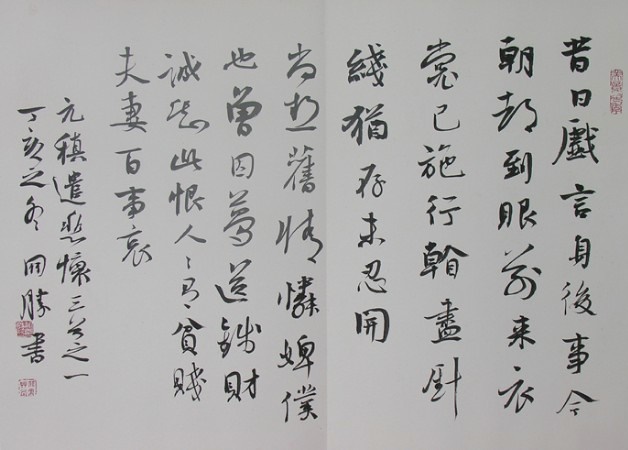 昔日戲言身後事今
朝都到眼前來衣
裳已施行看盡針
綫猶存未忍開
尚想舊情憐婢僕
也曾因夢送錢財
誠知此恨人〻有貧賤
夫妻百事哀
元稹遣悲懷三首之一
丁亥之冬同勝書